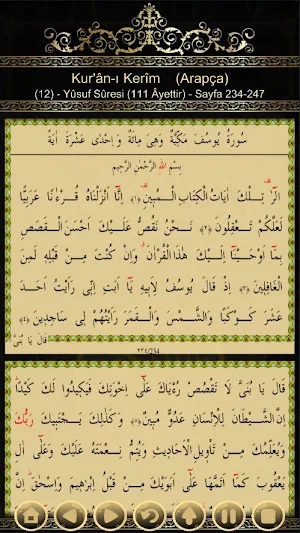 Kur'ân-ı Kerîm (Arapça)
(12) - Yûsuf Sûresi (111 Âyettir) - Sayfa 234-247
سُورَةُ يُوسُفَ مَكِّيَّةٌ وَهِىَ مِائَةٌ وَاِحْدٰى عَشْرَةَ اٰيَةً
بِسْمِ اللهِ الرَّحْمٰنِ الرَّحِيمِ
الٰرٰ تِلْكَ اٰيَاتُ الْكِتَابِ الْمُبِينِ ﴿١﴾ اِنَّٓا اَنْزَلْنَاهُ قُرْءٰنًا عَرَبِيًّا
لَعَلَّكُمْ تَعْقِلُونَ ﴿٢﴾ نَحْنُ نَقُصُّ عَلَيْكَ اَحْسَنَ الْقَصَصِ
بِمَٓا اَوْحَيْنَٓا اِلَيْكَ هٰذَا الْقُرْاٰنَ وَاِنْ كُنْتَ مِنْ قَبْلِهِ لَمِنَ
الْغَافِلِينَ ﴿٣﴾ اِذْ قَالَ يُوسُفُ لِاَبِيهِ يَٓا اَبَتِ اِنِّى رَاَيْتُ اَحَدَ
عَشَرَ كَوْكَبًا وَالشَّمْسَ وَالْقَمَرَ رَاَيْتُهُمْ لِى سَاجِدِينَ ﴿٤﴾
قَالَ يَا بُنَىَّ
٢٣٤/234
قَالَ يَا بُنَىَّ لَا تَقْصُصْ رُءْيَاكَ عَلٰٓى اِخْوَتِكَ فَيَكِيدُوا لَكَ كَيْدًا
اِنَّ الشَّيْطَانَ لِلْاِنْسَانِ عَدُوٌّ مُبِينٌ ﴿٥﴾ وَكَذٰلِكَ يَجْتَبِيكَ رَبُّكَ
وَيُعَلِّمُكَ مِنْ تَاْوِيلِ الْاَحَادِيثِ وَيُتِمُّ نِعْمَتَهُ عَلَيْكَ وَعَلٰٓى اٰلِ
يَعْقُوبَ كَمَٓا اَتَمَّهَا عَلٰٓى اَبَوَيْكَ مِنْ قَبْلُ اِبْرٰهِيمَ وَاِسْحٰقَ اِنَّ